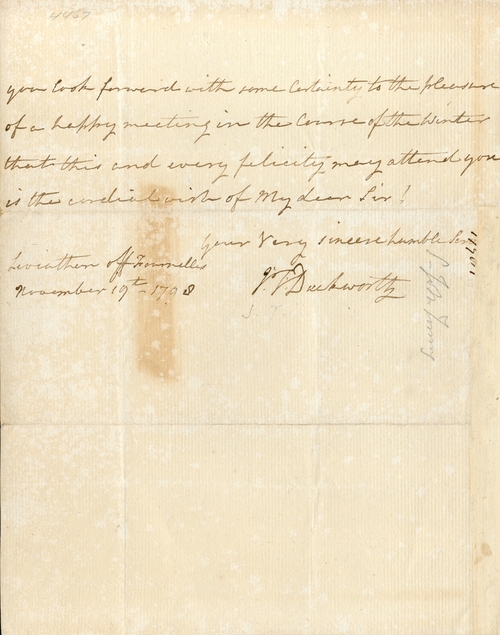 4467
you look forward with some Certainty to the pleasure
of a happy meeting in the Course of the Winter
that this and every felicity may attend you
is the cordial wish of My dear Sir!
Your Very sincere humble Ser
Leviathan off Fournelles
November 19th 1798
J T Duckworth